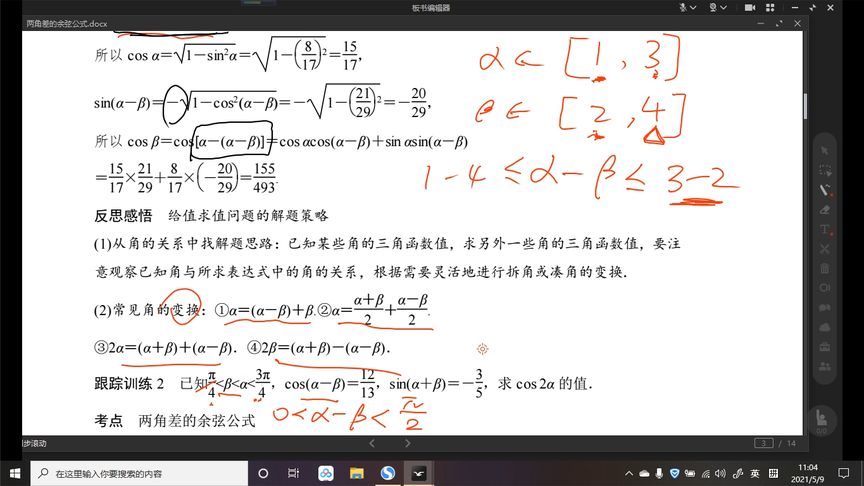 板书编辑器
两角差的余弦公式.docx
所以 cos α=√1-sin²α=√1-(8/17)²=15/17,
α∈[1,3]
sin(α-β)=-√1-cos²(α-β)=-√1-(21/29)²=-20/29,
β∈[2,4]
所以 cos β=cos[α-(α-β)]=cos αcos(α-β)+sin αsin(α-β)
1-4≤α-β≤3-2
=15/17×21/29+8/17×(-20/29)=155/493.
反思感悟 给值求值问题的解题策略
(1)从角的关系中找解题思路：已知某些角的三角函数值，求另外一些角的三角函数值，要注
意观察已知角与所求表达式中的角的关系，根据需要灵活地进行拆角或凑角的变换.
(2)常见角的变换：①α=(α-β)+β.②α=α+β/2+α-β/2.
③2α=(α+β)+(α-β). ④2β=(α+β)-(α-β).
跟踪训练 2 已知π/4<β<α<3π/4，cos(α-β)=12/13，sin(α+β)=-3/5，求 cos 2α 的值.
考点 两角差的余弦公式
0<α-β<π/2
步滚动
3 / 14
0/0
在这里输入你要搜索的内容
英
11:04
2021/5/9